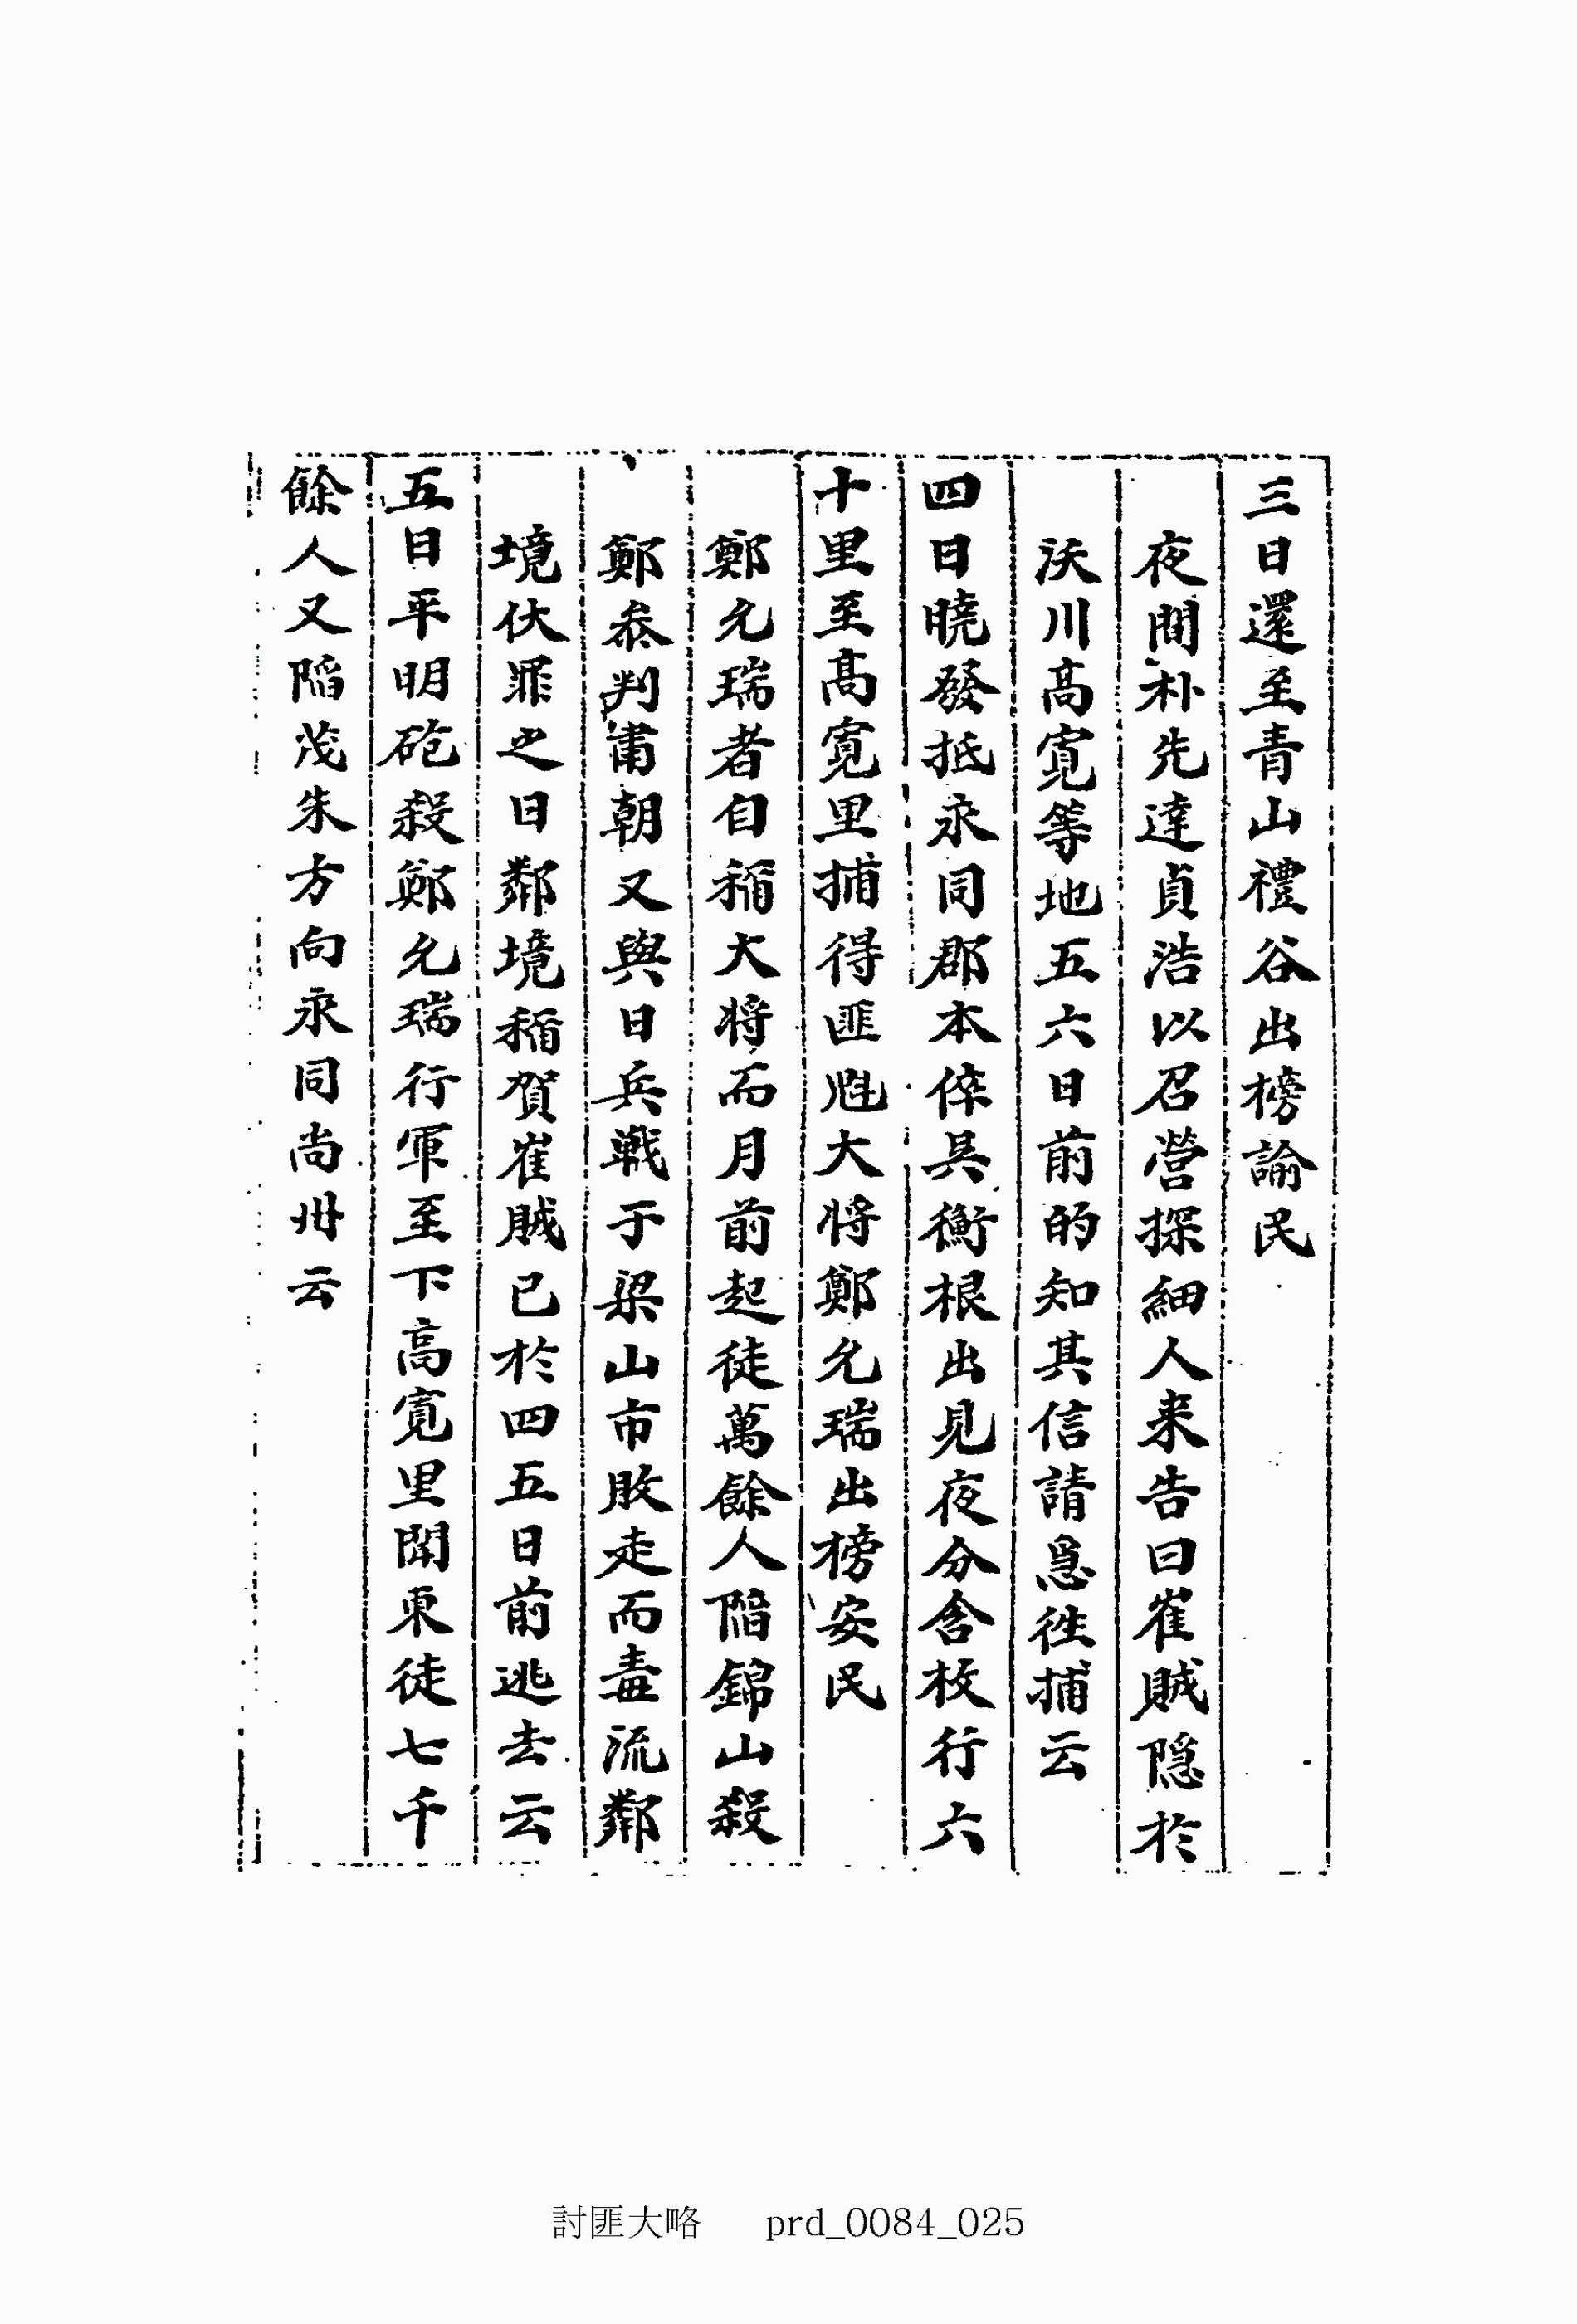 三日還至青山禮谷出榜諭民
夜間朴先達貞浩以召營探細人来告曰崔賊隠於
沃川高寛等地五六日前的知其信請急徃捕云
四日曉發抵永同郡本倅吳衡根出見夜分含枚行六
十里至高寛里捕得匪魁大将鄭允瑞出榜安民
鄭允瑞者自稱大将而月前起徒萬餘人陷錦山殺
鄭叅判甫朝又與日兵戰于梁山市敗走而毒流鄰
境伏罪之日鄰境稱賀崔賊已於四五日前逃去云
五日平明砲殺鄭允瑞行軍至下高寛里聞東徒七千
餘人又陷茂朱方向永同尚州云
討匪大略 prd_0084_025